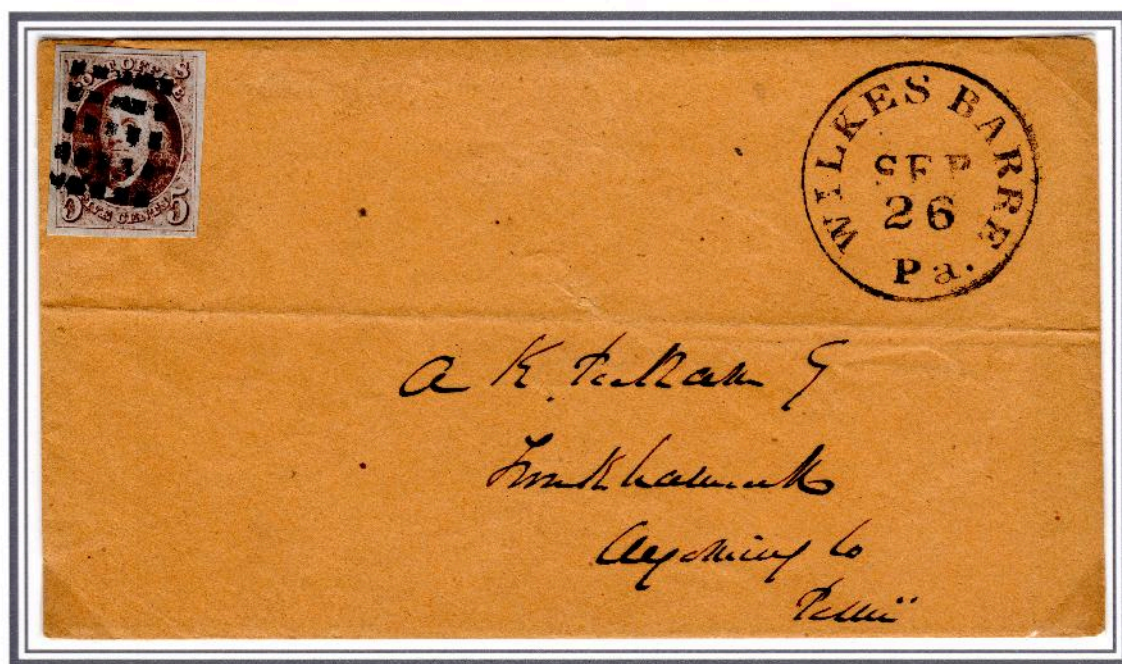 U S
POST OFFICE
5 FIVE CENTS 5
WILKES BARRE
SEP
26
Pa.
A K Peckham
Tunkhannock
Wyoming Co
Penna